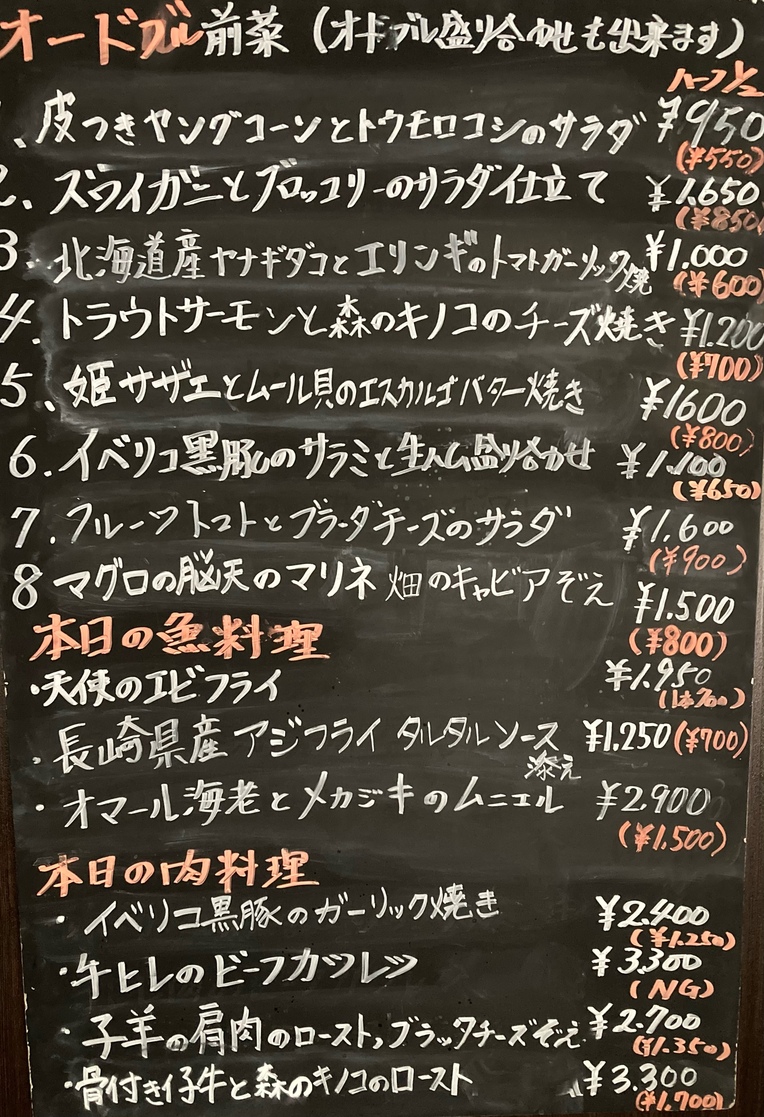 オードブル前菜（オードブル盛り合わせも出来ます）
ハーフ1/2
、皮つきヤングコーンとトウモロコシのサラダ ¥950
(¥550)
2、ズワイガニとブロッコリーのサラダ仕立て ¥1.650
(¥850)
3. 北海道産ヤナギダコとエリンギのトマトガーリック焼 ¥1.000
(¥600)
4. トラウトサーモンと森のキノコのチーズ焼き ¥1.200
(¥700)
5、姫サザエとムール貝のエスカルゴバター焼き ¥1600
(¥800)
6. イベリコ黒豚のサラミと生ハム盛り合わせ ¥1.100
(¥650)
7. フルーツトマトとブラーダチーズのサラダ ¥1.600
(¥900)
8 マグロの脳天のマリネ 畑のキャビアぞえ ¥1.500
(¥800)
本日の魚料理
・天使のエビフライ ¥1.950
(1本)
・長崎県産アジフライ タルタルソース添え ¥1.250(¥700)
・オマール海老とメカジキのムニエル ¥2.900
(¥1.500)
本日の肉料理
・イベリコ黒豚のガーリック焼き ¥2.400
(¥1.250)
・牛ヒレのビーフカツレツ ¥3.300
(NG)
・子羊の肩肉のロースト,ブラックチーズぞえ ¥2.700
(¥1.350)
・骨付き仔牛と森のキノコのロースト ¥3.300
(¥1.700)